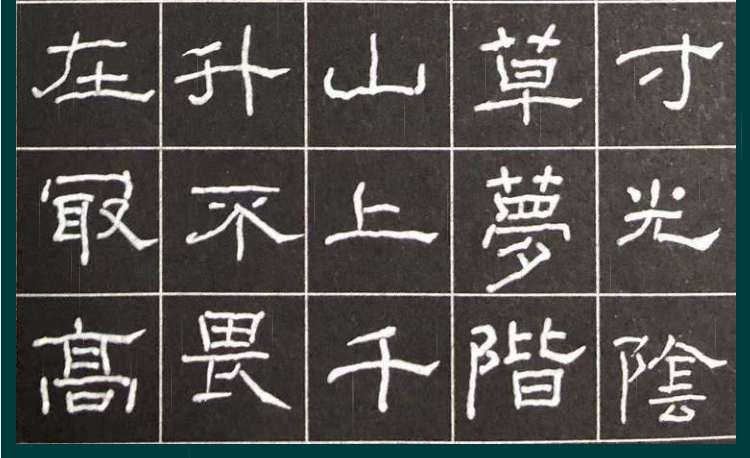 寸光陰
草夢階
山上千
升不畏
在冣髙